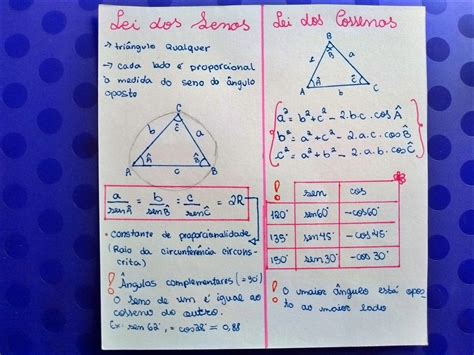 Lei dos Senos
→ triângulo qualquer
→ cada lado é proporcional
à medida do seno do ângulo
oposto
C
Ĉ
b
a
Â
B̂
A
c
B
a/senÂ = b/senB̂ = c/senĈ = 2R
• constante de proporcionalidade
(Raio da circunferência circuns-
crita)
! Ângulos complementares (=90°)
O seno de um é igual ao
cosseno do outro.
Ex: sen 62°, = cos28° = 0,88
Lei dos Cossenos
B
B̂
c
a
Â
Ĉ
A
b
C
a² = b² + c² - 2.b.c.cosÂ
b² = a² + c² - 2.a.c.cosB̂
c² = a² + b² - 2.a.b.cosĈ
! sen cos
120° sen60° -cos60°
135° sen45° -cos45°
150° sen30° -cos30°
! O maior ângulo está opos-
to ao maior lado